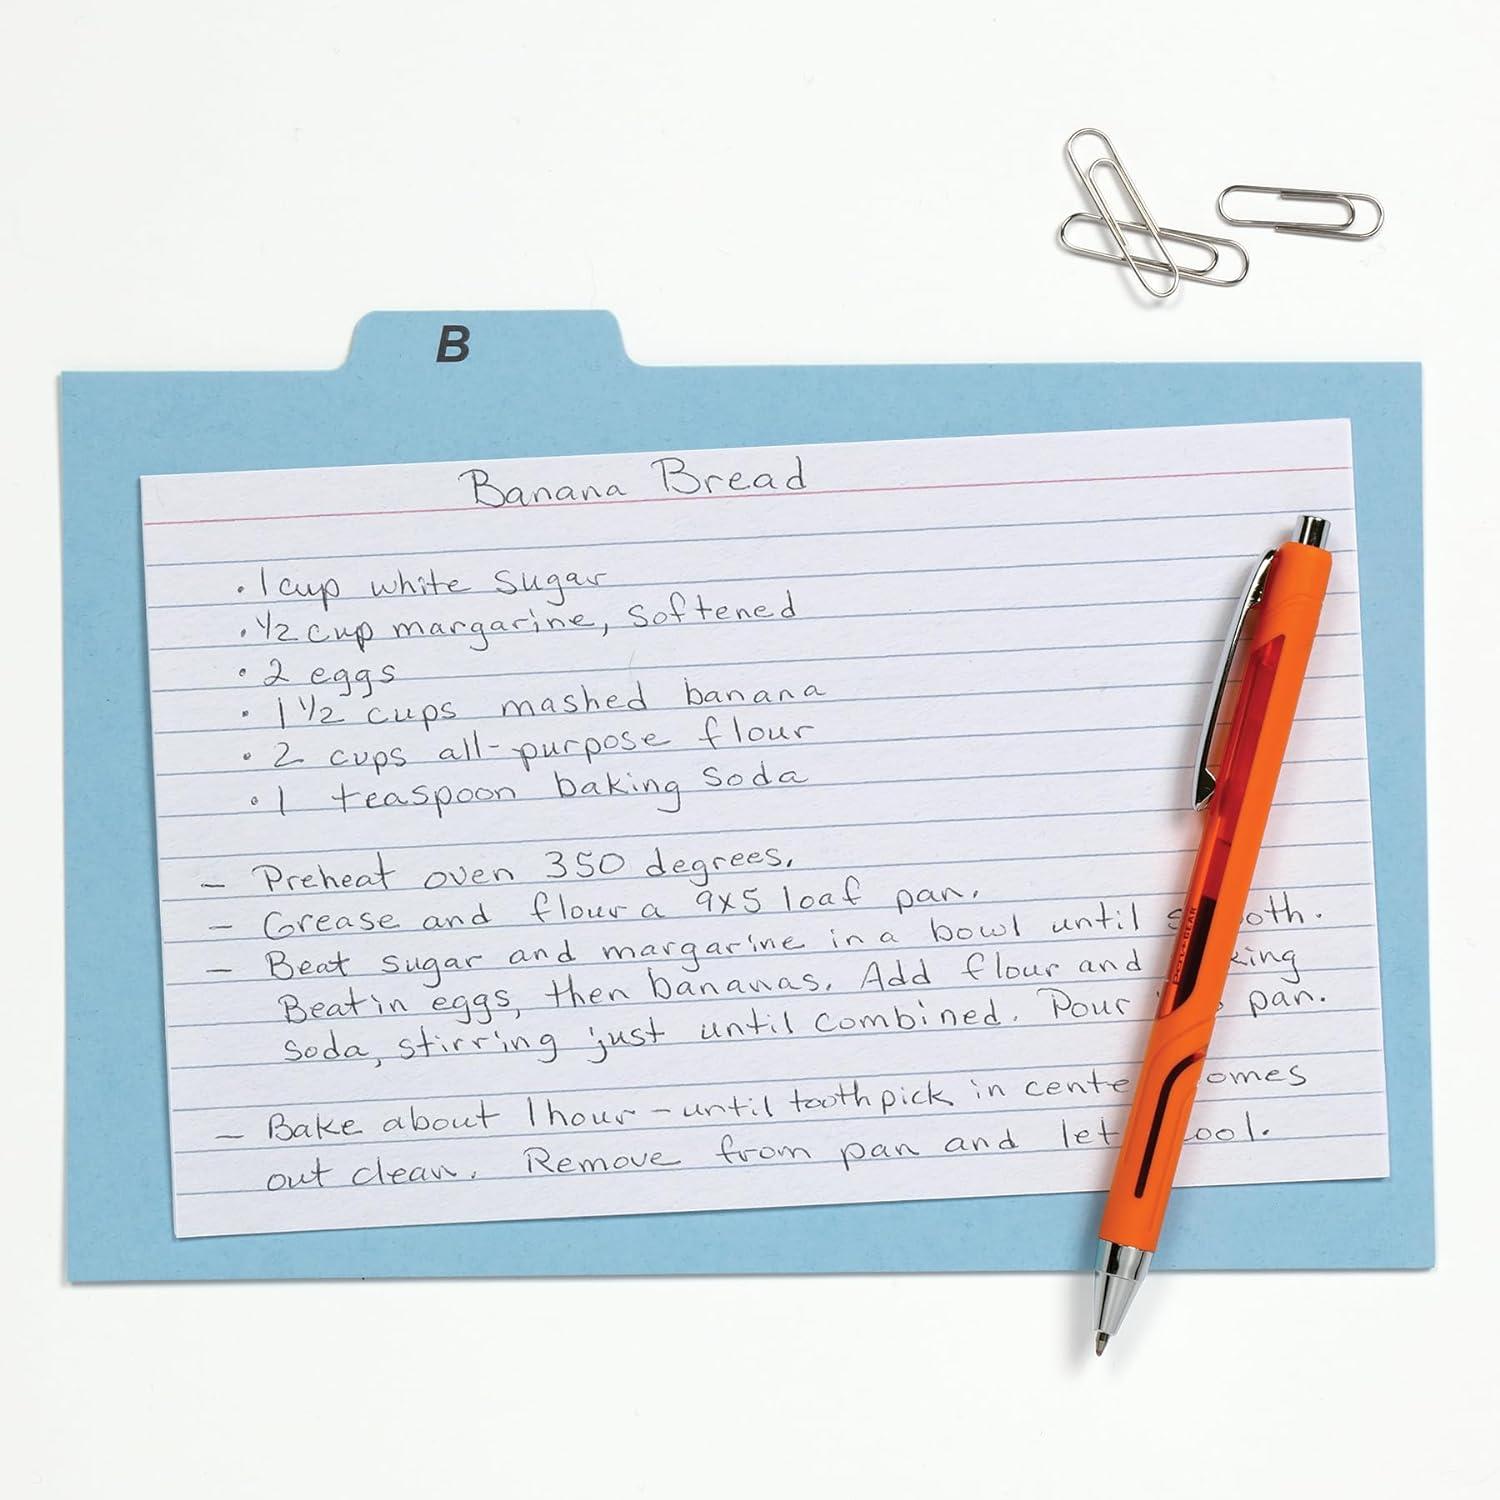 B
Banana Bread
• 1 cup white sugar
• 1/2 cup margarine, softened
• 2 eggs
• 1 1/2 cups mashed banana
• 2 cups all-purpose flour
• 1 teaspoon baking soda
- Preheat oven 350 degrees.
- Grease and flour a 9x5 loaf pan.
- Beat sugar and margarine in a bowl until
Beat in eggs, then bananas. Add flour and
soda, stirring just until combined. Pour pan.
- Bake about 1 hour - until toothpick in
out clean. Remove from pan and let